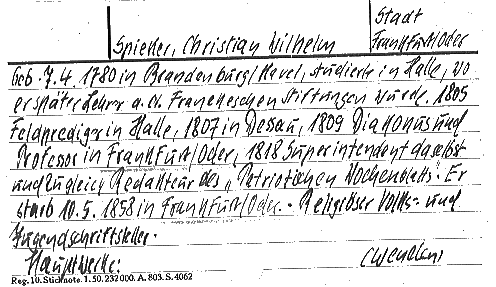 Stadt
Spieker, Christian Wilhelm Frankfurt/Oder
Geb. 7.4. 1780 in Brandenburg/Havel, studierte in Halle, wo
er später Lehrer a.d. Franckeschen Stiftungen wurde. 1805
Feldprediger in Halle, 1807 in Dessau, 1809 Diakonus und
Professor in Frankfurt/Oder, 1818 Superintendent daselbst
und zugleich Redakteur des "Patriotischen Wochenblatts". Er
starb 10.5. 1858 in Frankfurt/Oder. - Religiöser Volks- und
Jugendschriftsteller.
Hauptwerke:
Reg. 10. Stichnote. 1. 50. 232000. A. 803. S. 4062